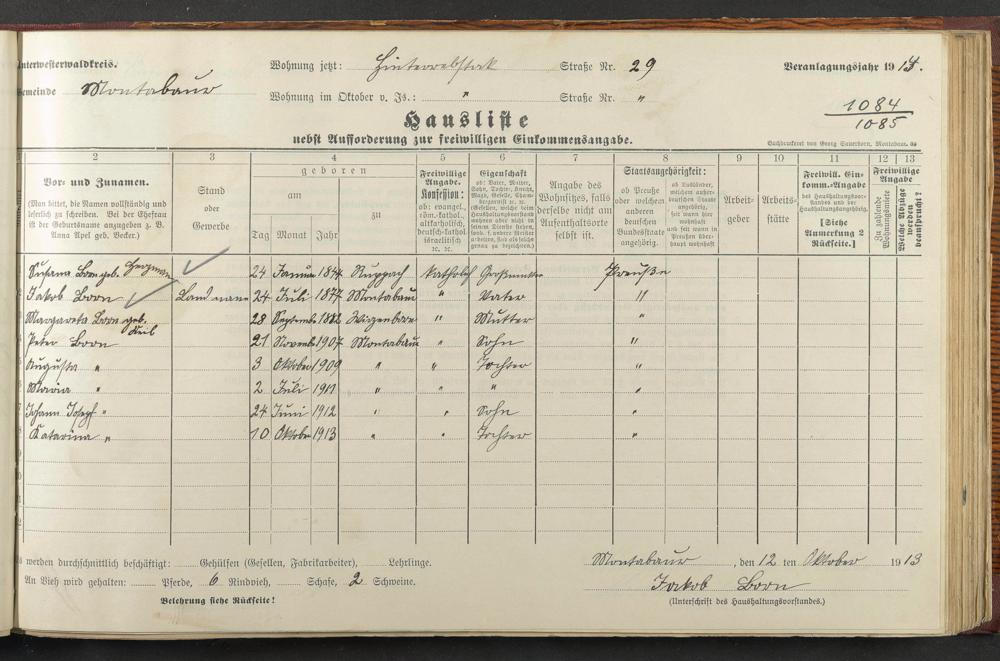 Unterwesterwaldkreis. Wohnung jetzt: Hinterrebstock Straße Nr. 29 Veranlagungsjahr 1914.
Gemeinde Montabaur Wohnung im Oktober v. Js.: " Straße Nr. "
1084
1085
Hausliste
nebst Aufforderung zur freiwilligen Einkommensangabe.
Buchdruckerei von Georg Sauerborn, Montabaur.
2 3 4 5 6 7 8 9 10 11 12 13
Vor- und Zunamen.
(Man bittet, die Namen vollständig und
leserlich zu schreiben. Bei der Ehefrau
ist der Geburtsname anzugeben z. B.
Anna Apel geb. Becker.)
Stand
oder
Gewerbe
geboren
am zu
Tag Monat Jahr
Freiwillige
Angabe.
Konfession:
ob: evangel.,
röm.-kathol.,
altkatholisch,
deutsch-kathol.
israelitisch
ꝛc. ꝛc.
Eigenschaft
ob: Vater, Mutter,
Sohn, Tochter, Knecht,
Magd, Geselle,
Angabe des
Wohnsitzes, falls
derselbe nicht am
Aufenthaltsorte
selbst ist.
Staatsangehörigkeit:
ob Preuße
oder welchen
anderen
deutschen
Bundesstaate
angehörig.
ob Ausländer,
welchem außer-
deutschen Staate
angehörig,
seit wann hier
wohnhaft
und seit wann in
Preußen über-
haupt wohnhaft
Arbeit-
geber
Arbeits-
stätte
Freiwill. Ein-
komm.-Angabe
des Haushaltungsvor-
standes und der
Haushaltungsangehörig.
[Siehe
Anmerkung 2
Rückseite.]
Freiwillige
Angabe
Zu zahlende
Wohnungsmiete
Welche Abzüge
werden
beansprucht?
Susana Born geb. 24 Januar 1844 Ruppach katholisch Großmutter Preuße
Jakob Born Landmann 24 Juli 1877 Montabaur " Vater "
Margareta Born geb. Keil 28 September 1882 " Mutter "
Peter Born 21 November 1907 Montabaur " Sohn "
Augusta " 3 Oktober 1909 " " Tochter "
Maria " 2 Juli 1911 " " " "
Johann Josef " 24 Juni 1912 " " Sohn "
Katarina " 10 Oktober 1913 " " Tochter "
Es werden durchschnittlich beschäftigt: Gehülfen (Gesellen, Fabrikarbeiter), Lehrlinge.
An Vieh wird gehalten: Pferde, 6 Rindvieh, Schafe, 2 Schweine.
Belehrung siehe Rückseite!
Montabaur, den 12 ten Oktober 1913
Jakob Born
(Unterschrift des Haushaltungsvorstandes.)